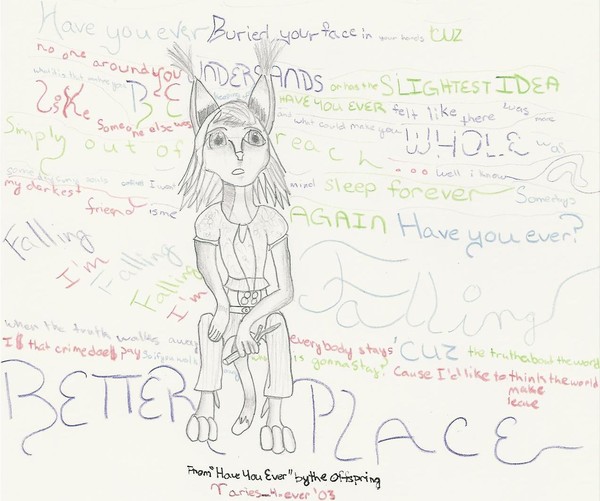 Have you ever Buried your face in your hands cuz
no one around you UNDERSTANDS or has the SLIGHTEST IDEA
BE
Like Someone else was HAVE YOU EVER felt like there was more
and what could make you WHOLE was
Simply out of reach
... well i know
Someday
my darkest friend is me sleep forever
AGAIN Have you ever?
Falling
I'm Falling
Falling
I'm
Falling
when the truth walks away everybody stays cuz the truth about the world
Is that crime does pay So if you walk is gonna stay? Cause I'd like to think the world
make
leave
BETTER PLACE
From "Have You Ever" by the Offspring